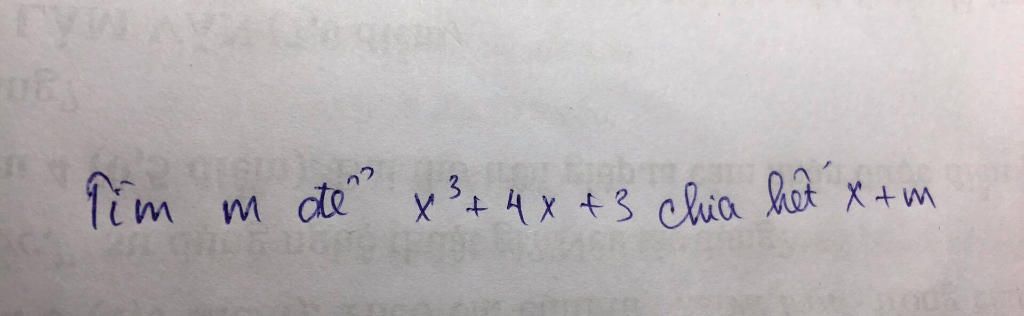 Tìm m để x³ + 4x + 3 chia hết x + m